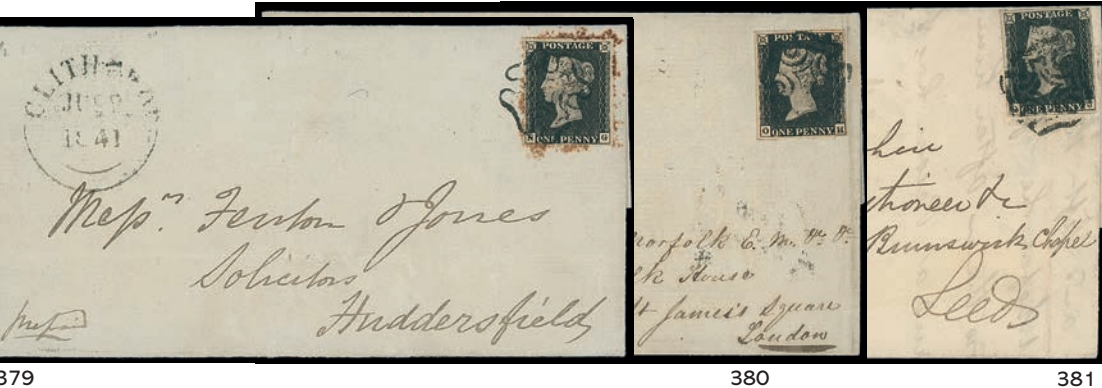 CLITHEROE
JU
1841
POSTAGE
N G
ONE PENNY
Messrs. Fenton & Jones
Solicitors
Huddersfield
prepaid
379
POSTAGE
O H
ONE PENNY
Norfolk E. M. &c &c
lk House
St James's Square
London
380
POSTAGE
ONE PENNY G
Brunswick Chapel
Leeds
381